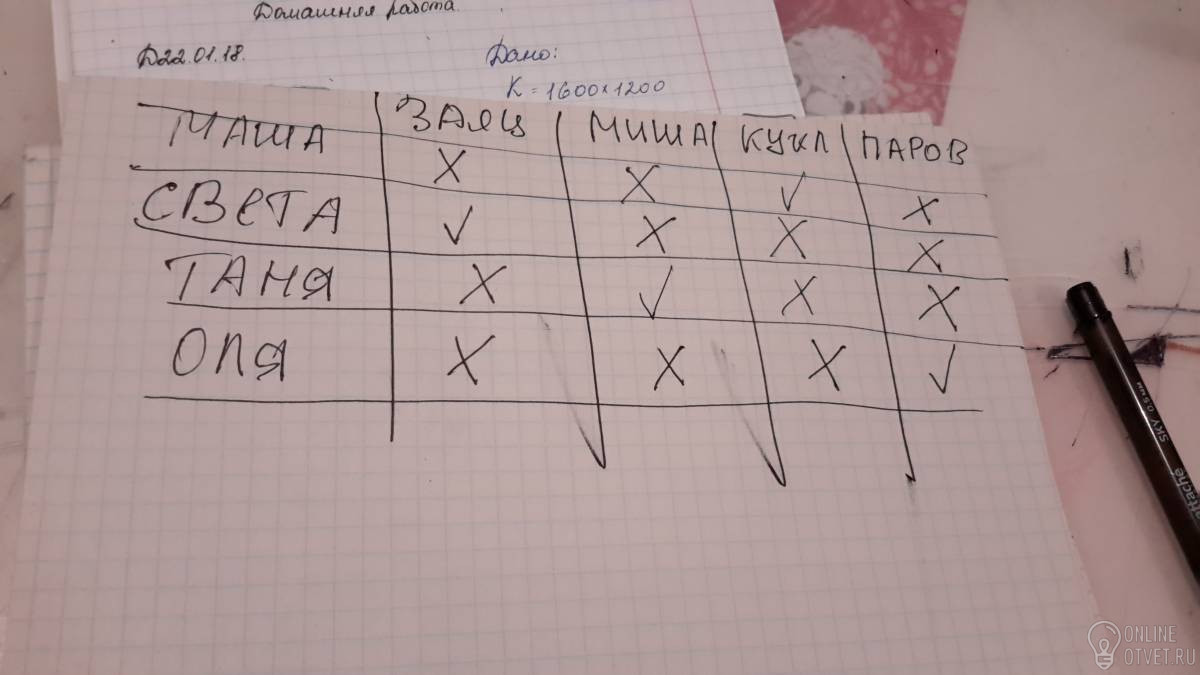 Домашняя работа.
Д22.01.18.
Дано:
K = 1600x1200
ЗАЯЦ МИША КУКЛ ПАРОВ
МАША X X ✓ X
СВЕТА ✓ X X X
ТАНЯ X ✓ X X
ОЛЯ X X X ✓
SKY 0.5мм
Attache
ONLINE
OTVET.RU